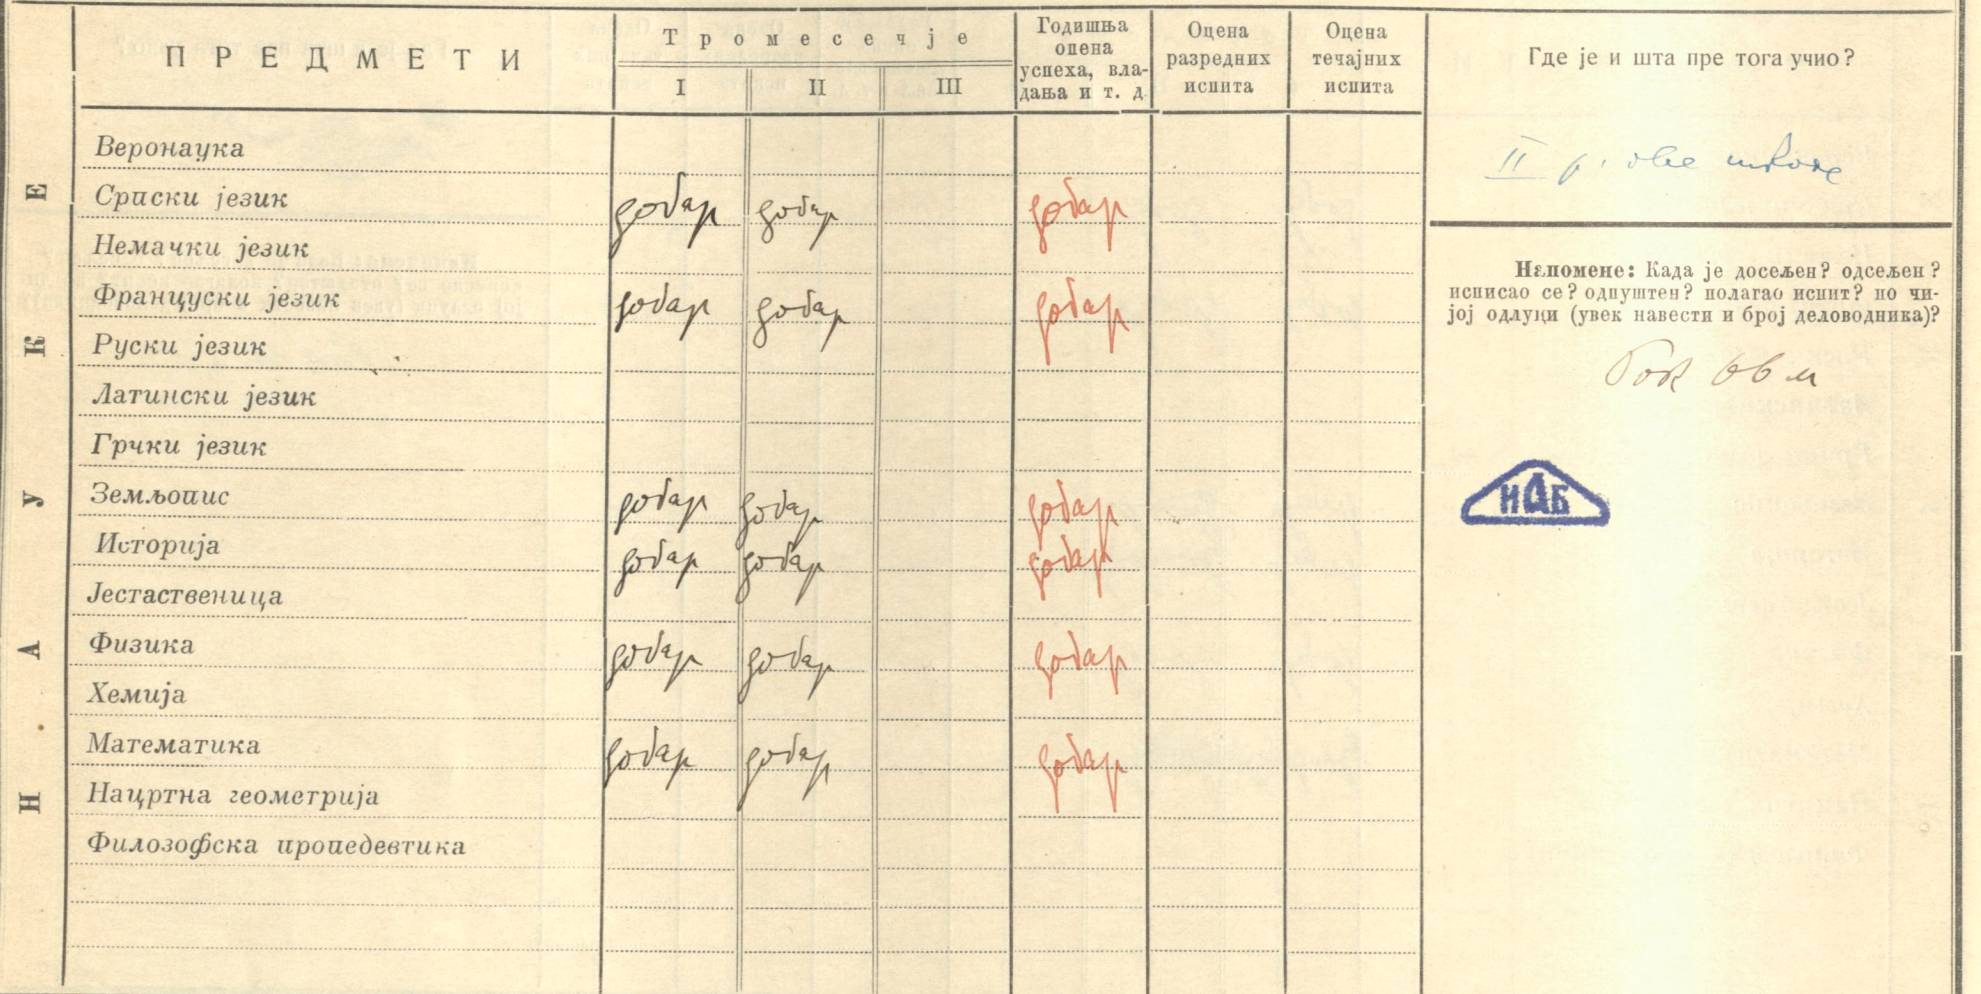 ПРЕДМЕТИ
Тромесечје
I II III
Годишња
оцена
успеха, вла-
дања и т. д.
Оцена
разредних
испита
Оцена
течајних
испита
Где је и шта пре тога учио?
НАУКЕ
Веронаука
Српски језик добар добар добар
Немачки језик
Француски језик добар добар добар
Руски језик
Латински језик
Грчки језик
Земљопис добар добар добар
Историја добар добар добар
Јестаственица
Физика добар добар добар
Хемија
Математика добар добар добар
Нацртна геометрија
Филозофска пропедевтика
II р. ове школе
Напомене: Када је досељен? одсељен?
исписао се? одпуштен? полагао испит? по чи-
јој одлуци (увек навести и број деловодника)?
ИАБ